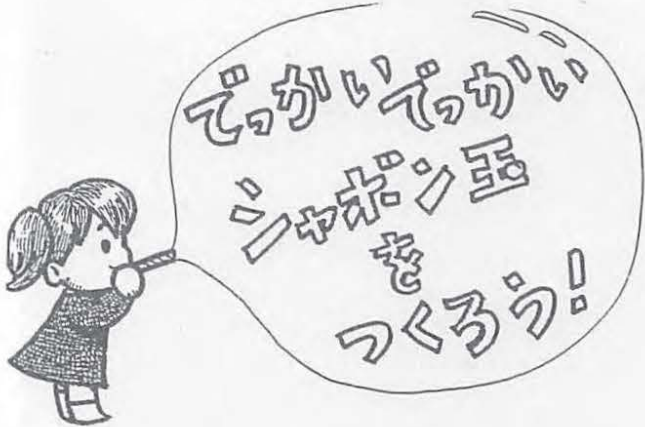 でっかいでっかい
シャボン玉
を
つくろう!